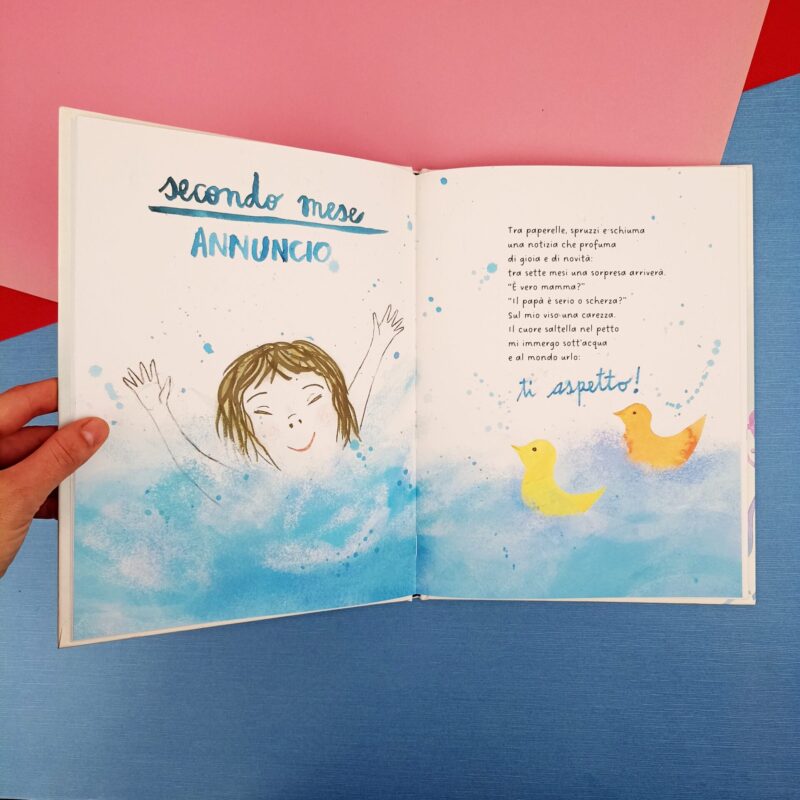 secondo mese
ANNUNCIO
Tra paperelle, spruzzi e schiuma
una notizia che profuma
di gioia e di novità:
tra sette mesi una sorpresa arriverà.
"È vero mamma?"
"Il papà è serio o scherza?"
Sul mio viso una carezza.
Il cuore saltella nel petto
mi immergo sott'acqua
e al mondo urlo:
ti aspetto!